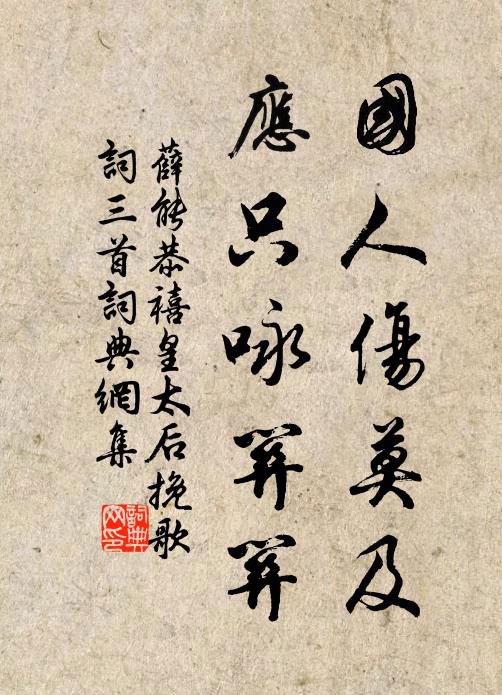 國人傷莫及
應只咏關關
薛能恭禧皇太后挽歌
詞三首詞典網集
詞典
网印